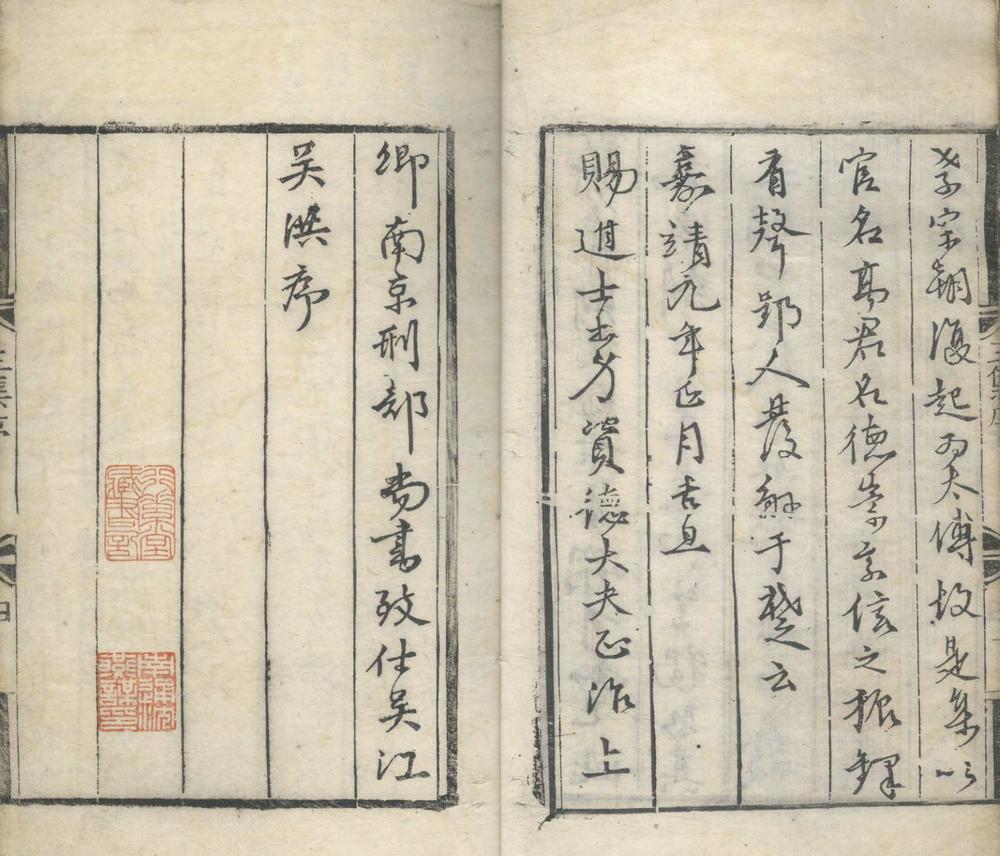 孝宗朝復起為太傅故是集以
官名高君名德崇字信之振鐸
有聲鄖人發解于楚云
嘉靖元年正月吉旦
賜進士出身資德大夫正治上
卿南京刑部尚書致仕吴江
吴洪序